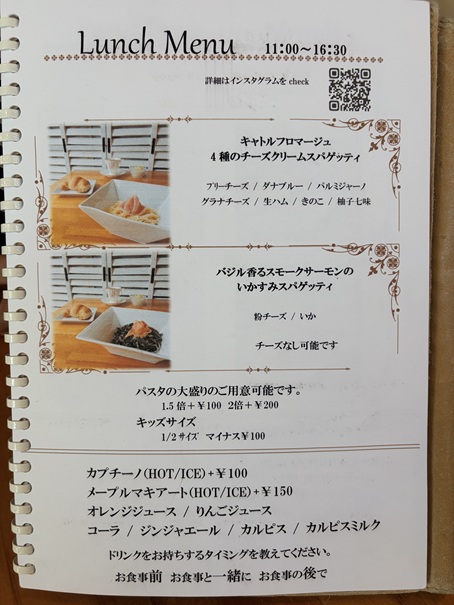 Lunch Menu 11:00～16:30
詳細はインスタグラムを check
キャトルフロマージュ
4 種のチーズクリームスパゲッティ
ブリーチーズ / ダナブルー / パルミジャーノ
グラナチーズ / 生ハム / きのこ / 柚子七味
バジル香るスモークサーモンの
いかすみスパゲッティ
粉チーズ / いか
チーズなし可能です
パスタの大盛りのご用意可能です。
1.5 倍＋￥100 2倍＋￥200
キッズサイズ
1/2 サイズ マイナス￥100
カプチーノ(HOT/ICE)+￥100
メープルマキアート(HOT/ICE)+￥150
オレンジジュース / りんごジュース
コーラ / ジンジャエール / カルピス / カルピスミルク
ドリンクをお持ちするタイミングを教えてください。
お食事前 お食事と一緒に お食事の後で